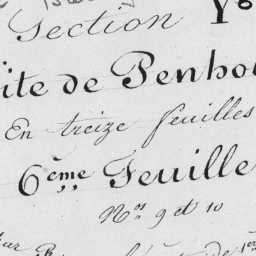 Section Y°
ite de Penho
En treize feuilles
6ème Feuille
Nos 9 et 10
de 1er